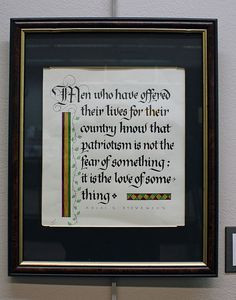 Men who have offered
their lives for their
country know that
patriotism is not the
fear of something:
it is the love of some-
thing
ADLAI E. STEVENSON